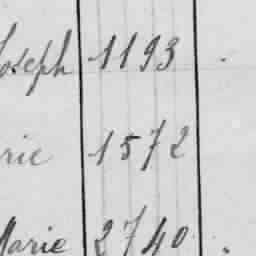 Joseph 1193
rie 1572
Marie 2740